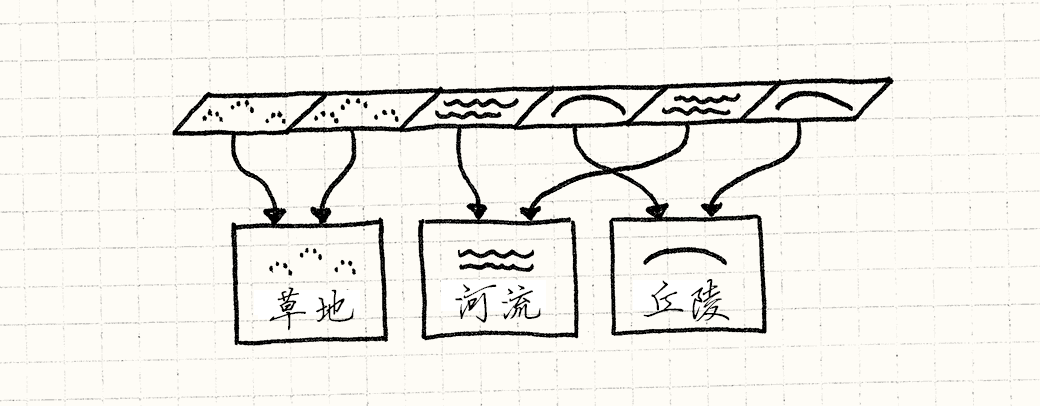 草地
河流
丘陵